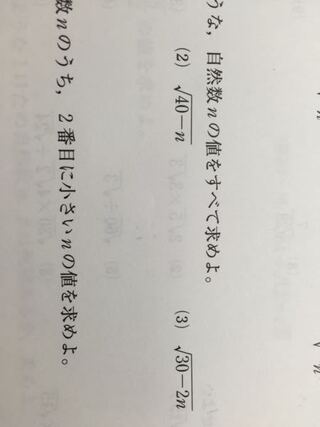 うな，自然数nの値をすべて求めよ。
(2) √40−n (3) √30−2n
数nのうち，2番目に小さいnの値を求めよ。